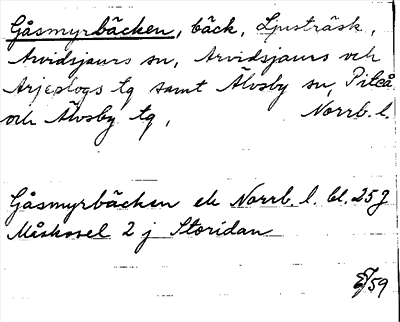 Gåsmyrbäcken, bäck, Ljusträsk,
Arvidsjaurs sn, Arvidsjaurs och
Arjeplogs tg samt Älvsby sn, Piteå
och Älvsby tg, Norrb. l.
Gåsmyrbäcken ek Norrb. l. bl. 25 J
Måskosel 2 j Storidan
59